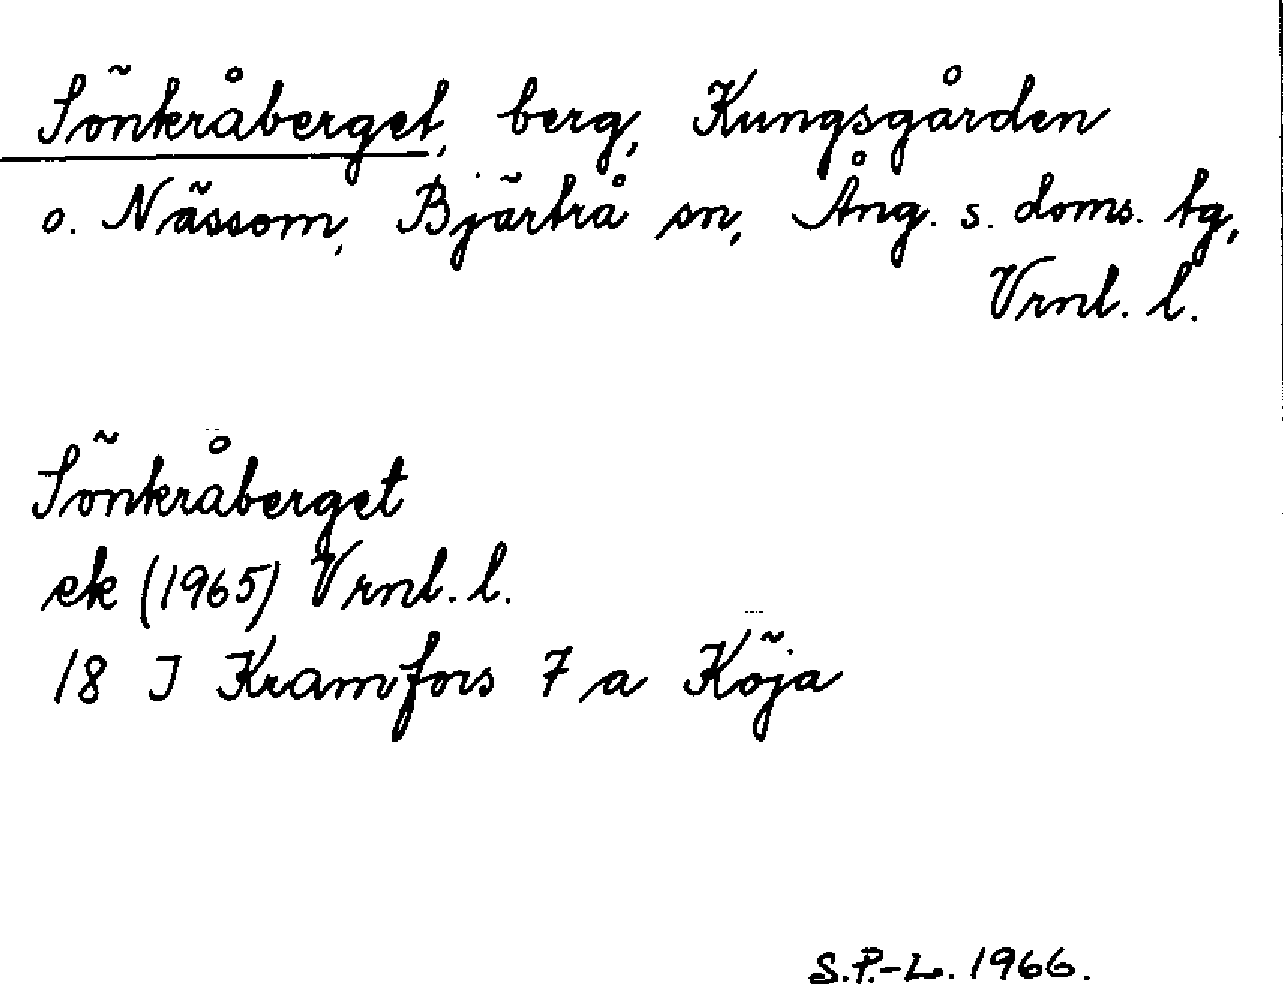 Sönkråberget, berg, Kungsgården
o. Nässom, Bjärtrå sn, Ång. s. doms. tg,
Vrnl. l.
Sönkråberget
ek (1965) Vrnl. l.
18 J Kramfors 7 a Köja
S.P.-L. 1966.